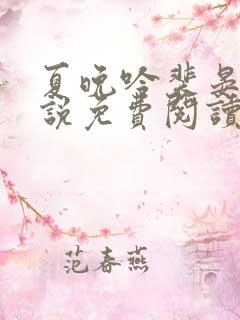 夏晚吟裴晃
說免費閱讀
范春燕